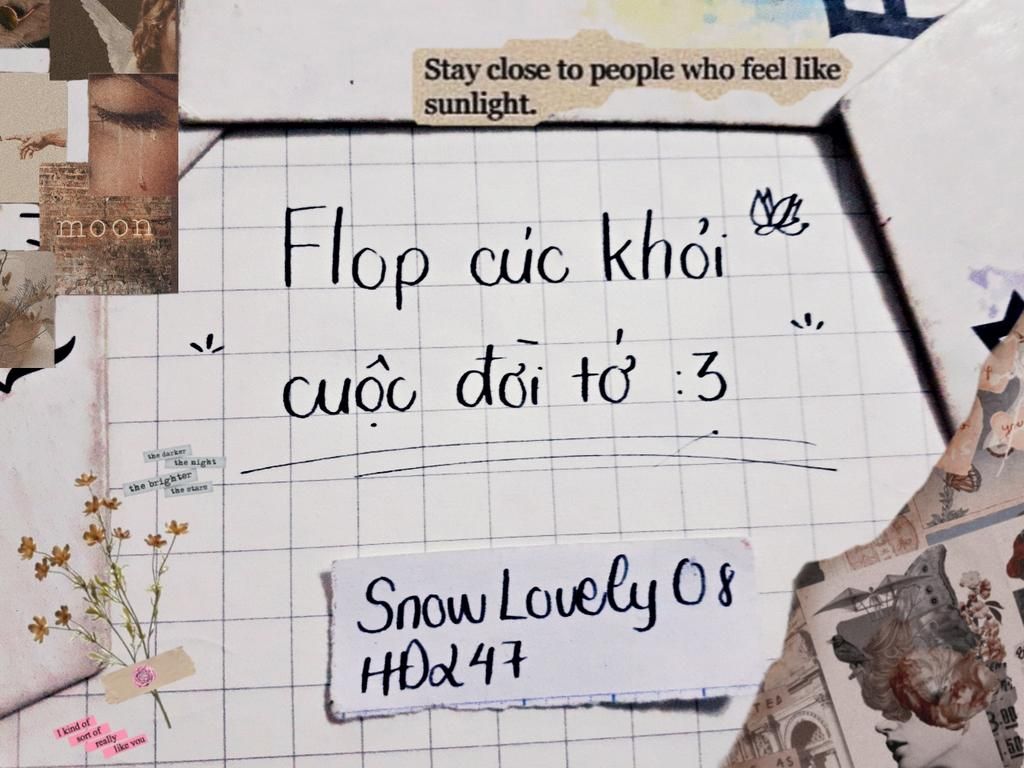 Stay close to people who feel like
sunlight.
moon
Flop cúc khỏi
cuộc đời tớ :3
the darker
the night
the brighter
the stars
Snow Lovely 08
HDα247
I kind of
sort of
really
like you